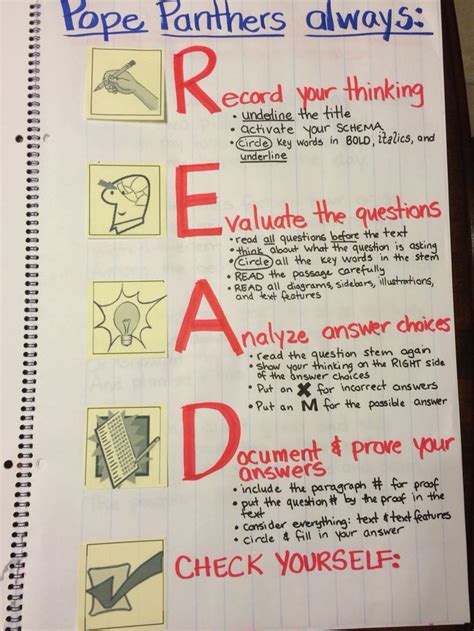 Pope Panthers always:
Record your thinking
• underline the title
• activate your SCHEMA
• circle key words in BOLD, italics, and
underline
Evaluate the questions
• read all questions before the text
• think about what the question is asking
• circle all the key words in the stem
• READ the passage carefully
• READ all diagrams, sidebars, illustrations,
and text features
Analyze answer choices
• read the question stem again
• show your thinking on the RIGHT side
of the answer choices
• Put an X for incorrect answers
• Put an M for the possible answer
Document & prove your
answers
• include the paragraph # for proof
• put the question # by the proof in the
text
• consider everything: text & text features
• circle & fill in your answer
CHECK YOURSELF: